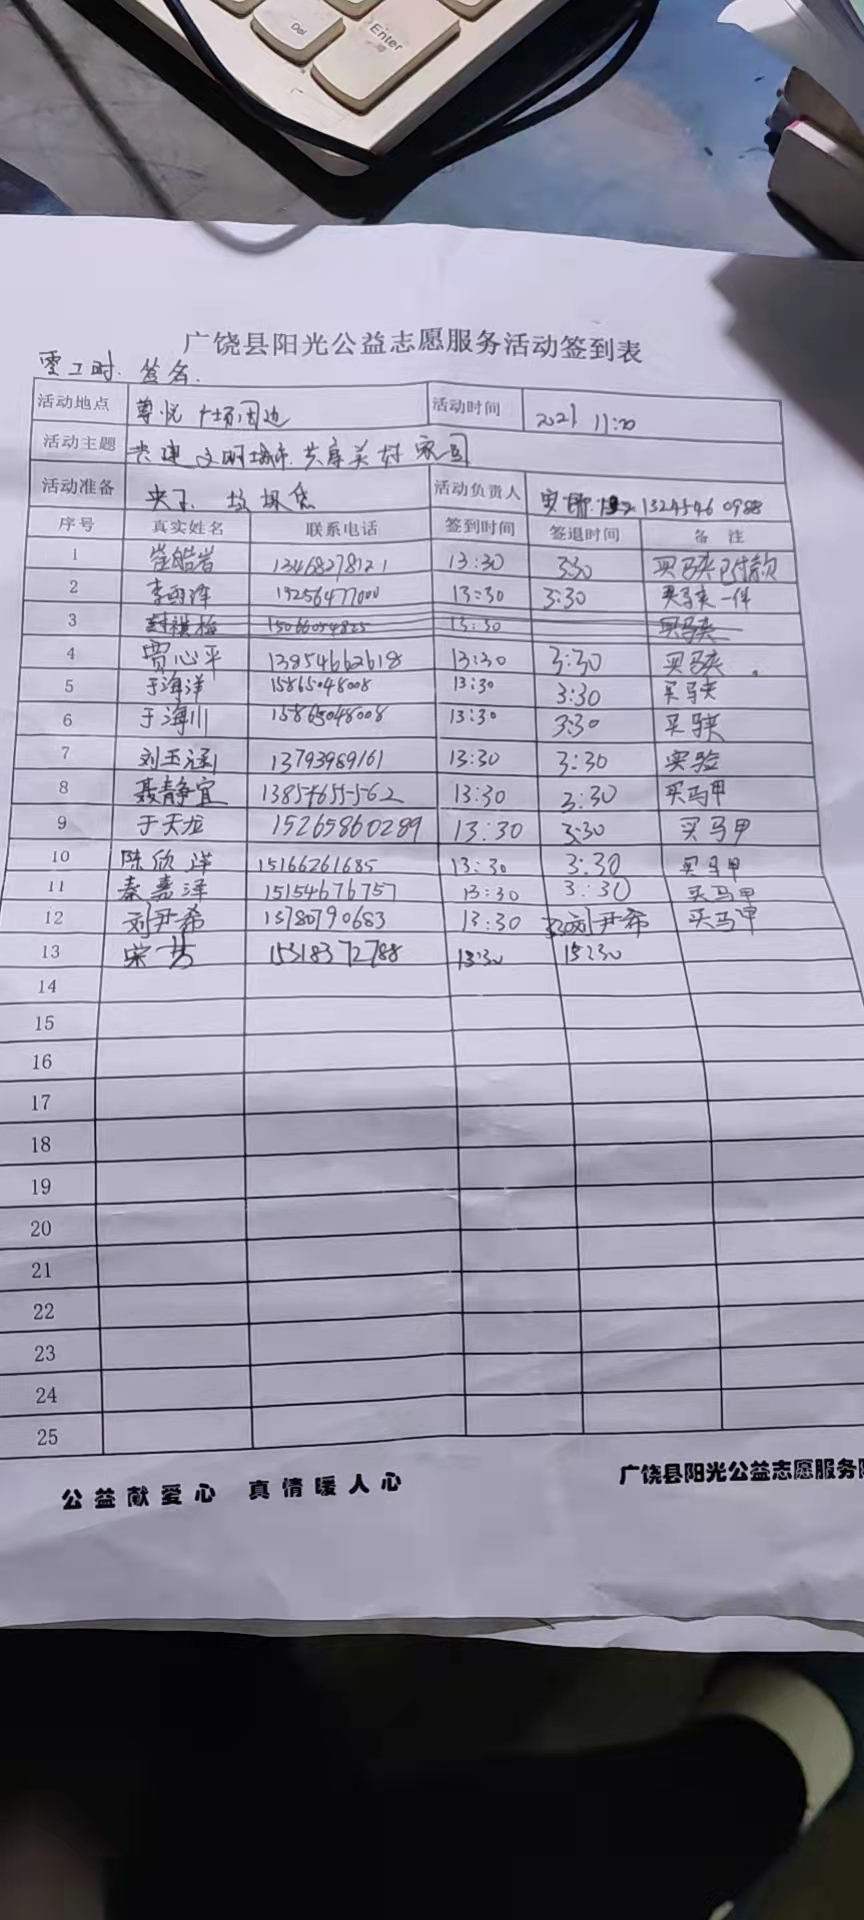 Del
Enter
广饶县阳光公益志愿服务活动签到表
零工时.签名.
活动地点 尊悦广场周边 活动时间 2021 11:20
活动主题 共建文明城市.共享美好家园
活动准备 夹子、垃圾袋 活动负责人 13245460988
序号 真实姓名 联系电话 签到时间 签退时间 备注
1 崔皓岩 13468278121 13:30 3:30 买马夹已付款
2 李雨泽 19256477000 13:30 3:30 买马夹一件
3 15066054825 13:30 买马夹
4 贾心平 13854662618 13:30 3:30 买马夹.
5 于海洋 15865048008 13:30 3:30 买马夹
6 于海川 15865048008 13:30 3:30 买马夹
7 刘玉涵 13793989161 13:30 3:30 实验
8 聂静宜 13854655562 13:30 3:30 买马甲
9 于天龙 15265860289 13:30 3:30 买马甲
10 陈欣洋 15166261685 13:30 3:30 买马甲
11 秦嘉泽 15154676757 13:30 3:30 买马甲
12 刘尹希 13780790683 13:30 3:30刘尹希 买马甲
13 宋芳 15318372788 13:30 15:30
14
15
16
17
18
19
20
21
22
23
24
25
公益献爱心 真情暖人心
广饶县阳光公益志愿服务队